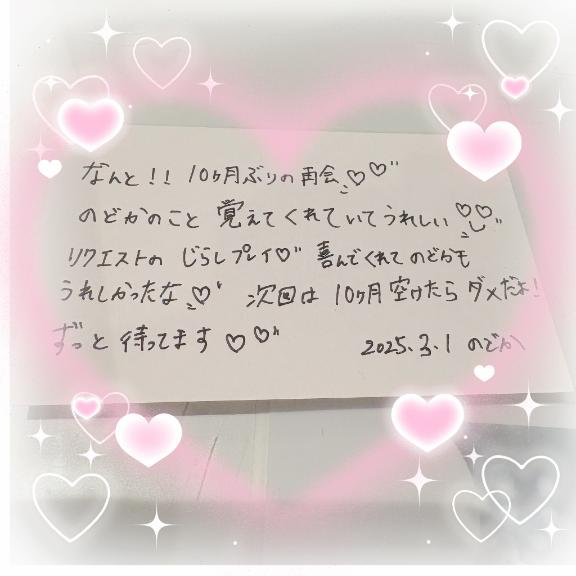 なんと!! 10ヶ月ぶりの再会♡♡
のどかのこと 覚えてくれていてうれしい♡♡
リクエストの じらしプレイ♡ 喜んでくれてのどかも
うれしかったな♡ 次回は 10ヶ月空けたら ダメだよ!
ずっと 待ってます ♡♡ 2025.3.1 のどか